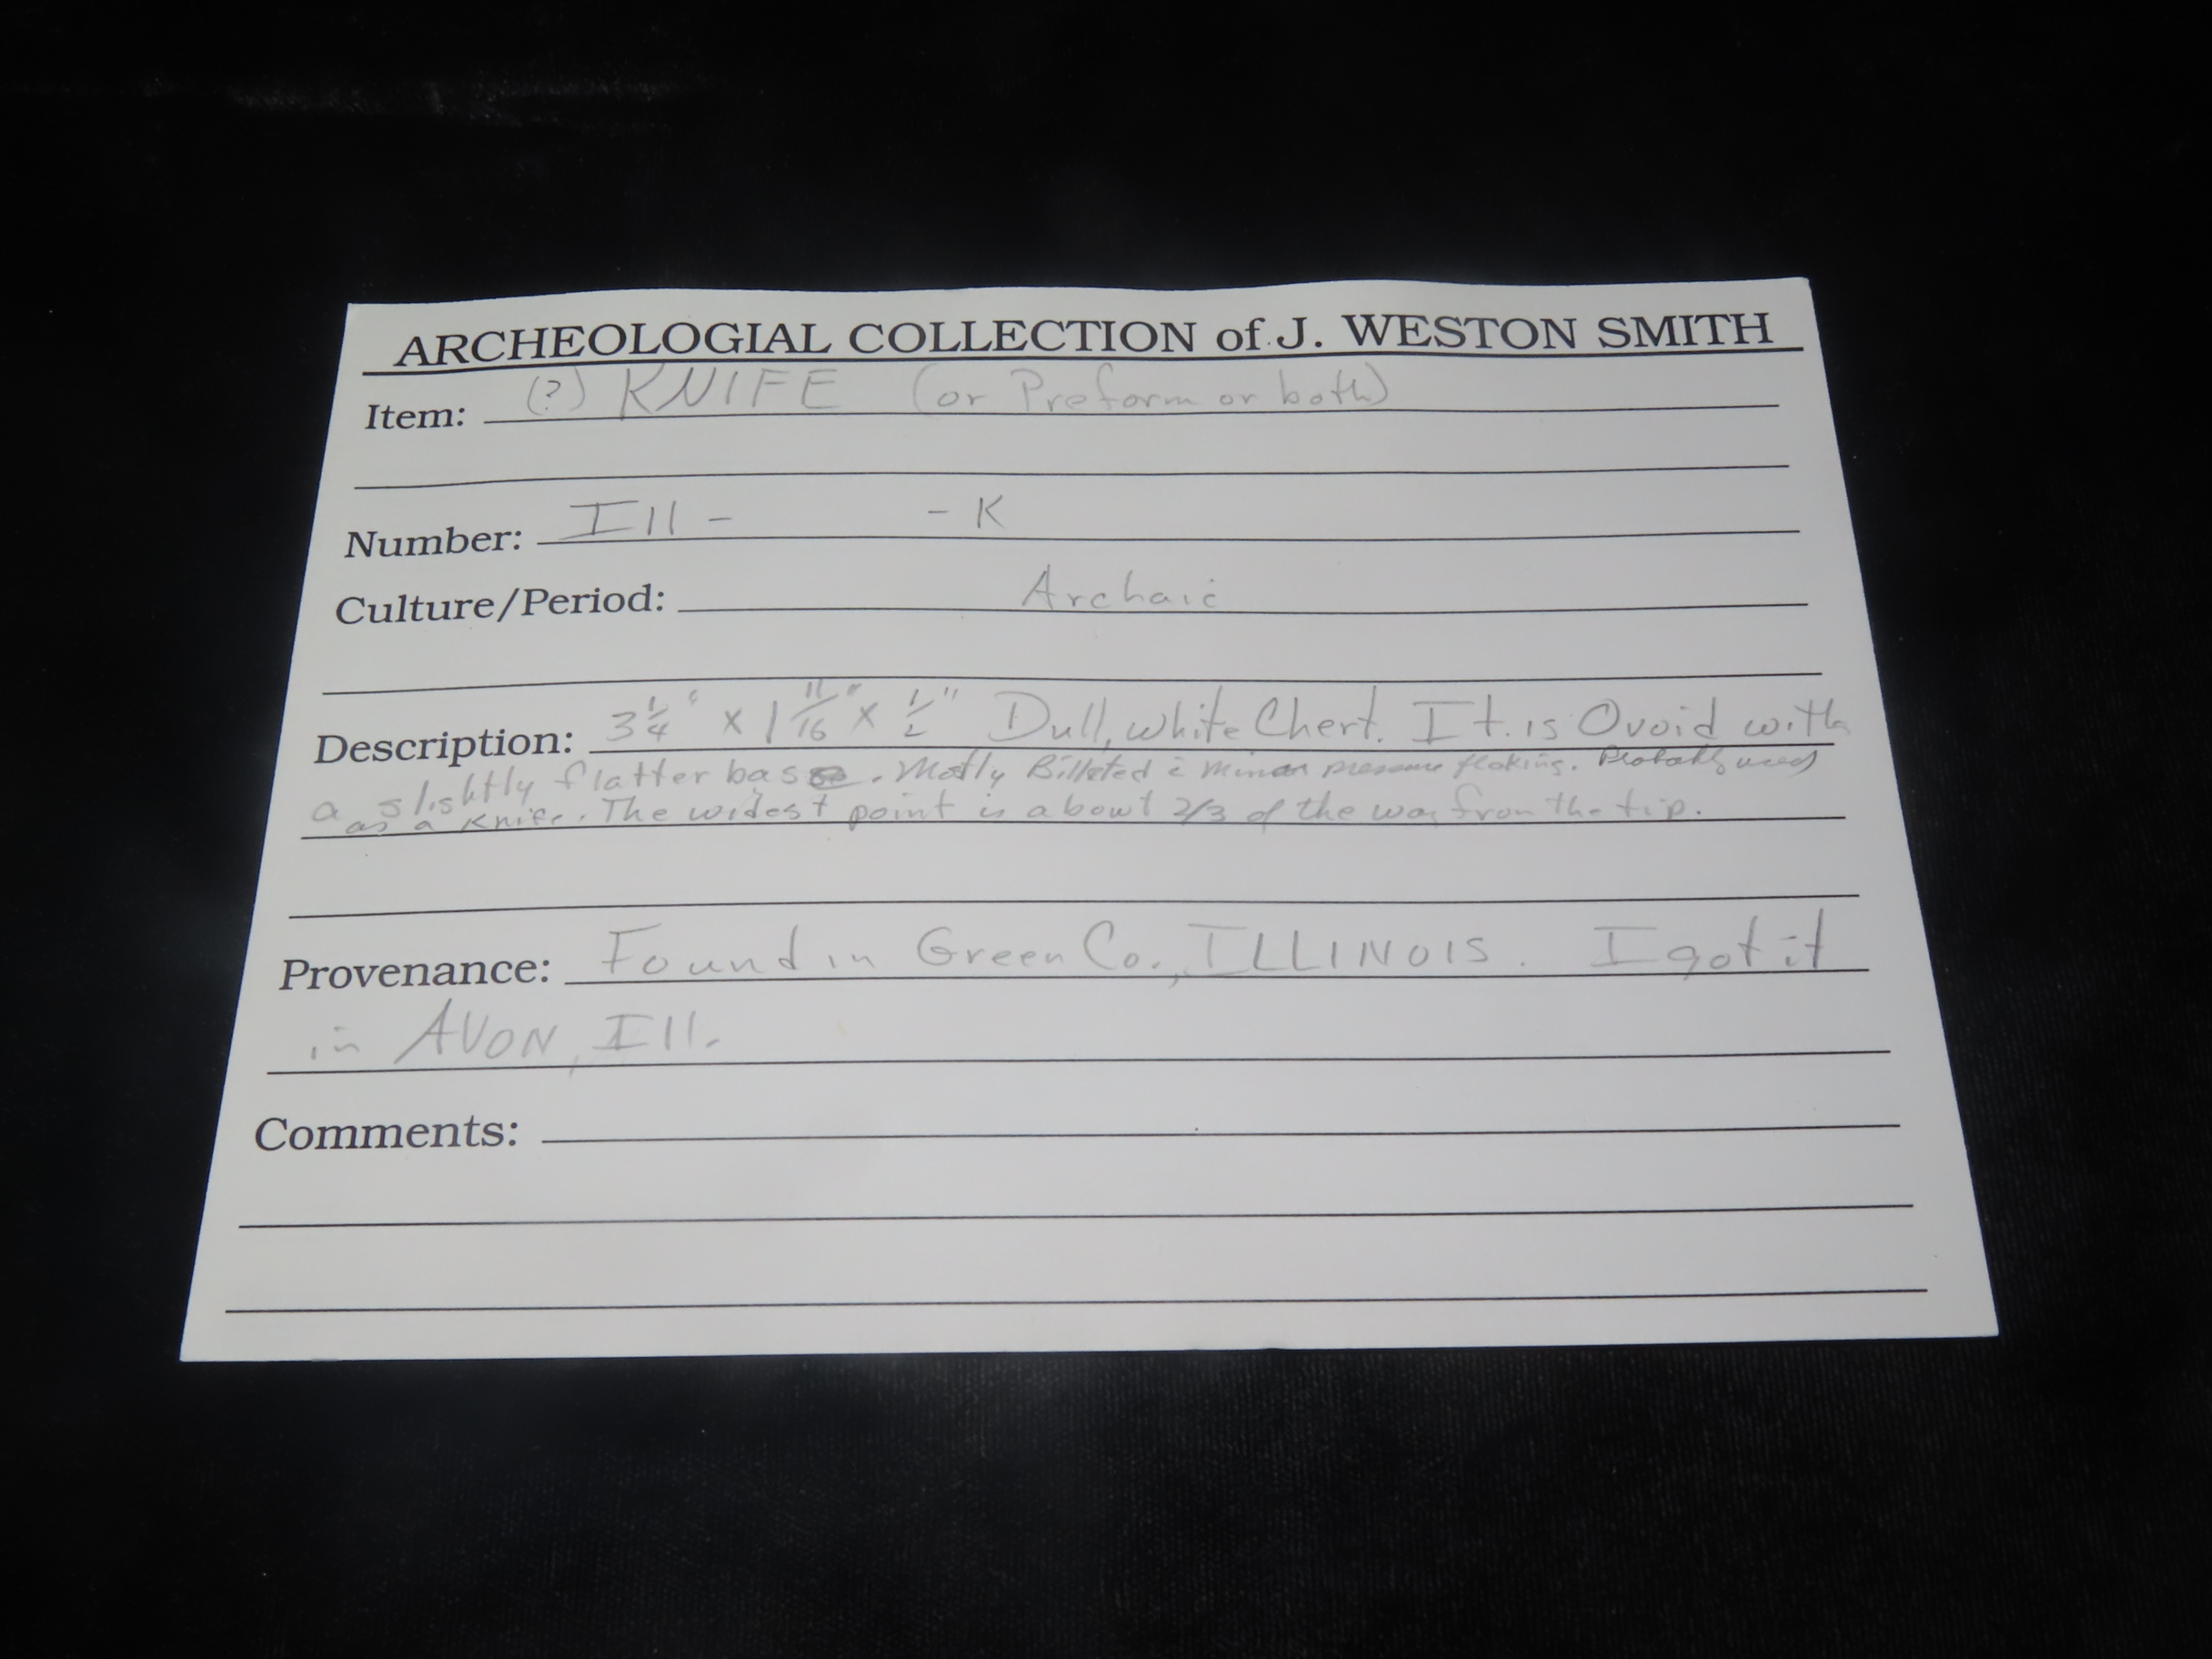 ARCHEOLOGIAL COLLECTION of J. WESTON SMITH
Item: (?) KNIFE (or Preform or both)
Number: Ill - - K
Culture/Period: Archaic
Description: 3 1/4" x 1 11/16" x 1/2" Dull, white Chert. It is Ovoid with
a slightly flatter base. Mostly Billeted c̄ minor pressure flaking. Probably used
as a Knife. The widest point is about 2/3 of the way from the tip.
Provenance: Found in Green Co., ILLINOIS. I got it
in AVON, Ill.
Comments: